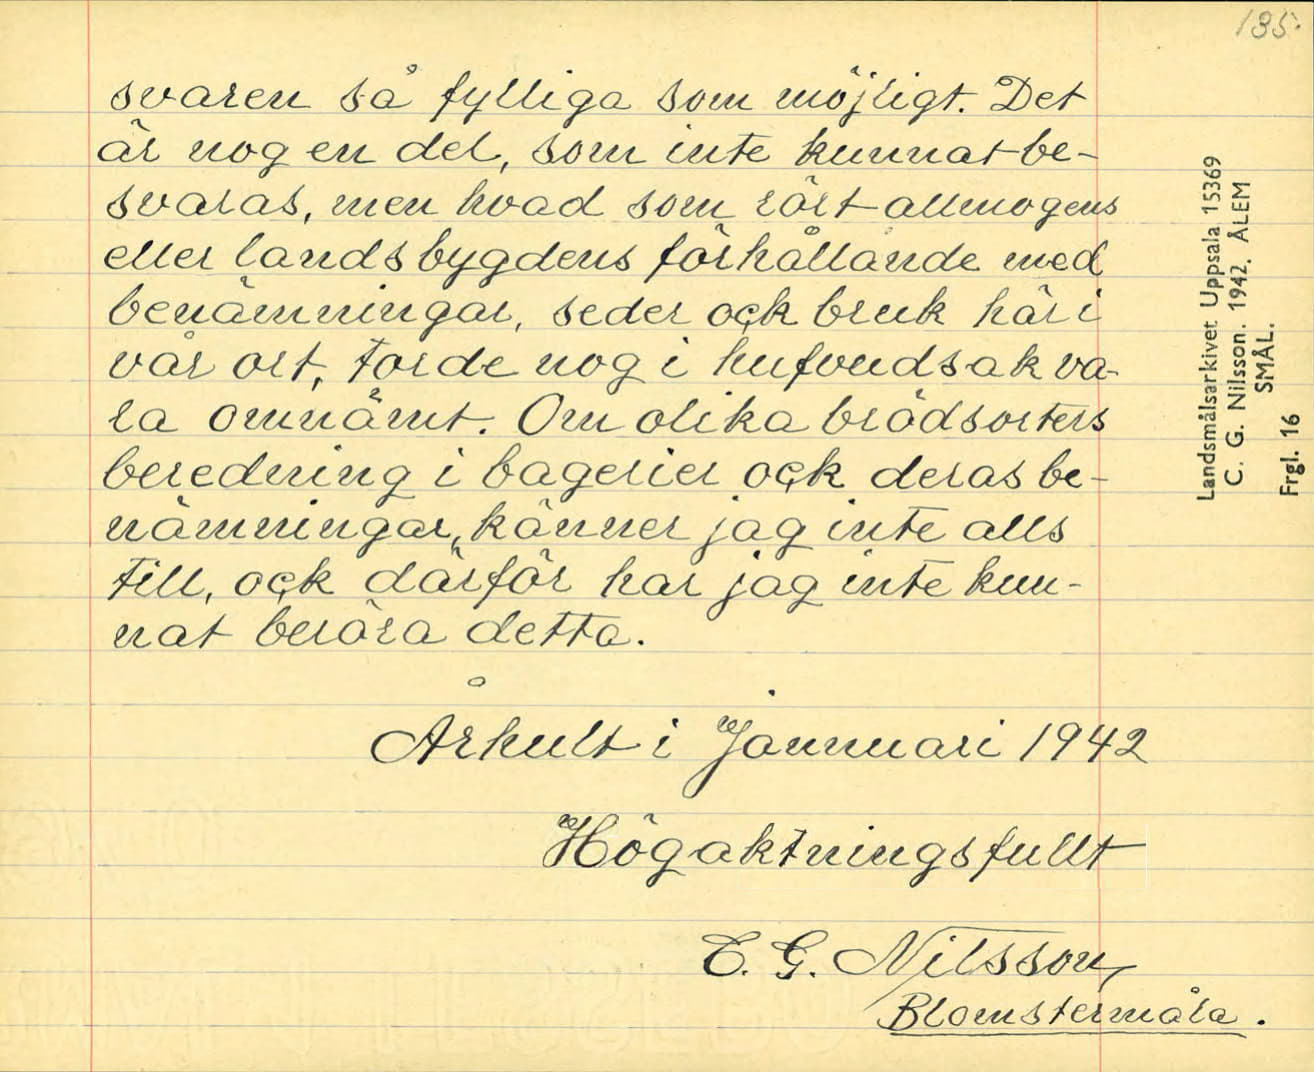 135.
svaren så fylliga som möjligt. Det
är nog en del, som inte kunnat be-
svaras, men hvad som rört allmogens
eller landsbygdens förhållande med
benämningar, seder ock bruk här i
vår ort, torde nog i hufvudsak va-
ra omnämt. Om olika brödsorters
beredning i bagerier ock deras be-
nämningar, känner jag inte alls
till, ock därför har jag inte kun-
nat beröra detta.
Århult i Jannuari 1942
Högaktningsfullt
C. G. Nilsson,
Blomstermåla.
Landsmålsarkivet Uppsala 15369
C. G. Nilsson. 1942. ÅLEM
SMÅL.
Frgl. 16